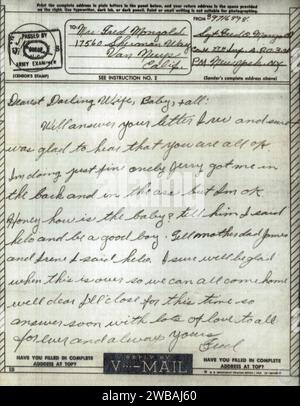 Print the complete address in plain letters in the panel below, and your return address in the space provided on the right. Use typewriter, dark ink, or dark pencil. Faint or small writing is not suitable for photographing.
To: Mrs Fred Mongold
17560 Sherman Way
Van Nuys
Calif.
From:
Sgt Fred
PASSED BY
ARMY EXAMINER
(CENSOR'S STAMP)
SEE INSTRUCTION NO. 2
(Sender's complete address above)
Dearest Darling Wife, Baby & all:
Will answer your letter I rec and sure
was glad to hear that you are all ok
Im doing just fine only Jerry got me in
the back and in the ass but Im ok
Honey how is the baby? tell him I said
helo and be a good boy. Tell mother dad
and Irene I said helo. I sure will be glad
when this is over so we can all come home
well dear I'll close for this time so
answer soon with lots of love to all
for ever and always yours
Fred
HAVE YOU FILLED IN COMPLETE
ADDRESS AT TOP?
REPLY BY
V···-MAIL
HAVE YOU FILLED IN COMPLETE
ADDRESS AT TOP?
alamy
Image ID: 2WBAJ60
www.alamy.com